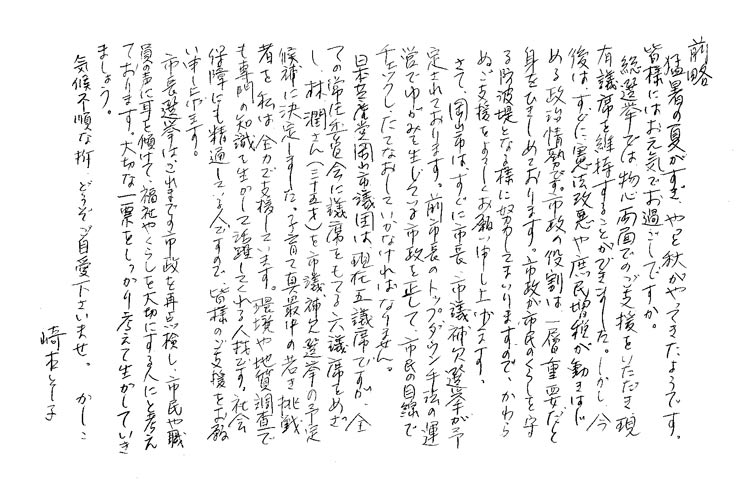 前略
猛暑の夏がすぎ、やっと秋がやってきたようです。
皆様にはお元気でお過ごしですか。
総選挙では物心両面でのご支援をいただき現
有議席を維持することができました。しかし、今
後は、すぐに憲法改悪や庶民増税が動きはじ
める政治情勢です。市政の役割は一層重要だと
身をひきしめております。市政が市民のくらしを守
る防波堤となる様に努力してまいりますので、かわら
ぬご支援をよろしくお願い申し上げます。
さて、岡山市は、すぐに市長、市議補欠選挙が予
定されております。前市長のトップダウン手法の運
営でゆがみを生じている市政を正して、市民の目線で
チェックしたてなおしていかなければなりません。
日本共産党岡山市議団は、現在五議席ですが、全
ての常任委員会に議席をもてる六議席をめざ
し、林潤さん(三十五才)を市議補欠選挙の予定
候補に決定しました。子育て真最中の若き挑戦
者を、私は全力で支援しています。環境や地質調査で
も専門の知識を生かして活躍してくれる人材です。社会
保障にも精通している人ですので、皆様のご支援をお願
い申し上げます。
市長選挙は、これまでの市政を再点検し、市民や職
員の声に耳を傾けて、福祉やくらしを大切にする人にと考え
ております。大切な一票をしっかり考えて生かしていき
ましょう。
気候不順な折、どうぞご自愛下さいませ。 かしこ
崎本とし子